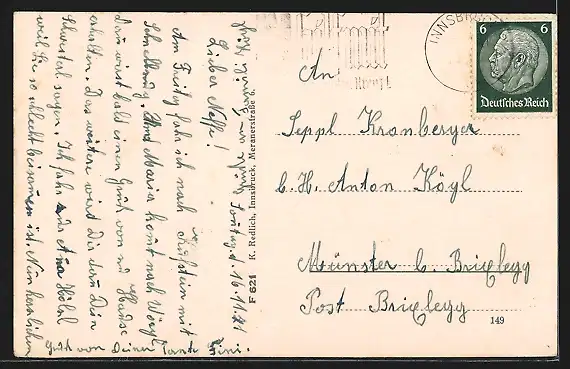 Sonntag, d. 16.11.41
Lieber Neffe!
Am Freitag fuhr ich nach Kufstein mit
Schnellzug. Und Maria kommt nach Wörgl.
Du wirst bald einen Gruß von
erhalten. Das weitere wird Dir dann Dein
Schwesterl sagen. Ich fahr
weil Sie so schlecht beisammen ist. Nun herzlichen
Gruß von Deiner Tante Fini.
F 621 K. Redlich, Innsbruck, Meranerstraße 6.
INNSBRUCK
6 6
Deutsches Reich
An
Seppl Kronberger
b. H. Anton Kögl
Münster b. Brixlegg
Post Brixlegg
149